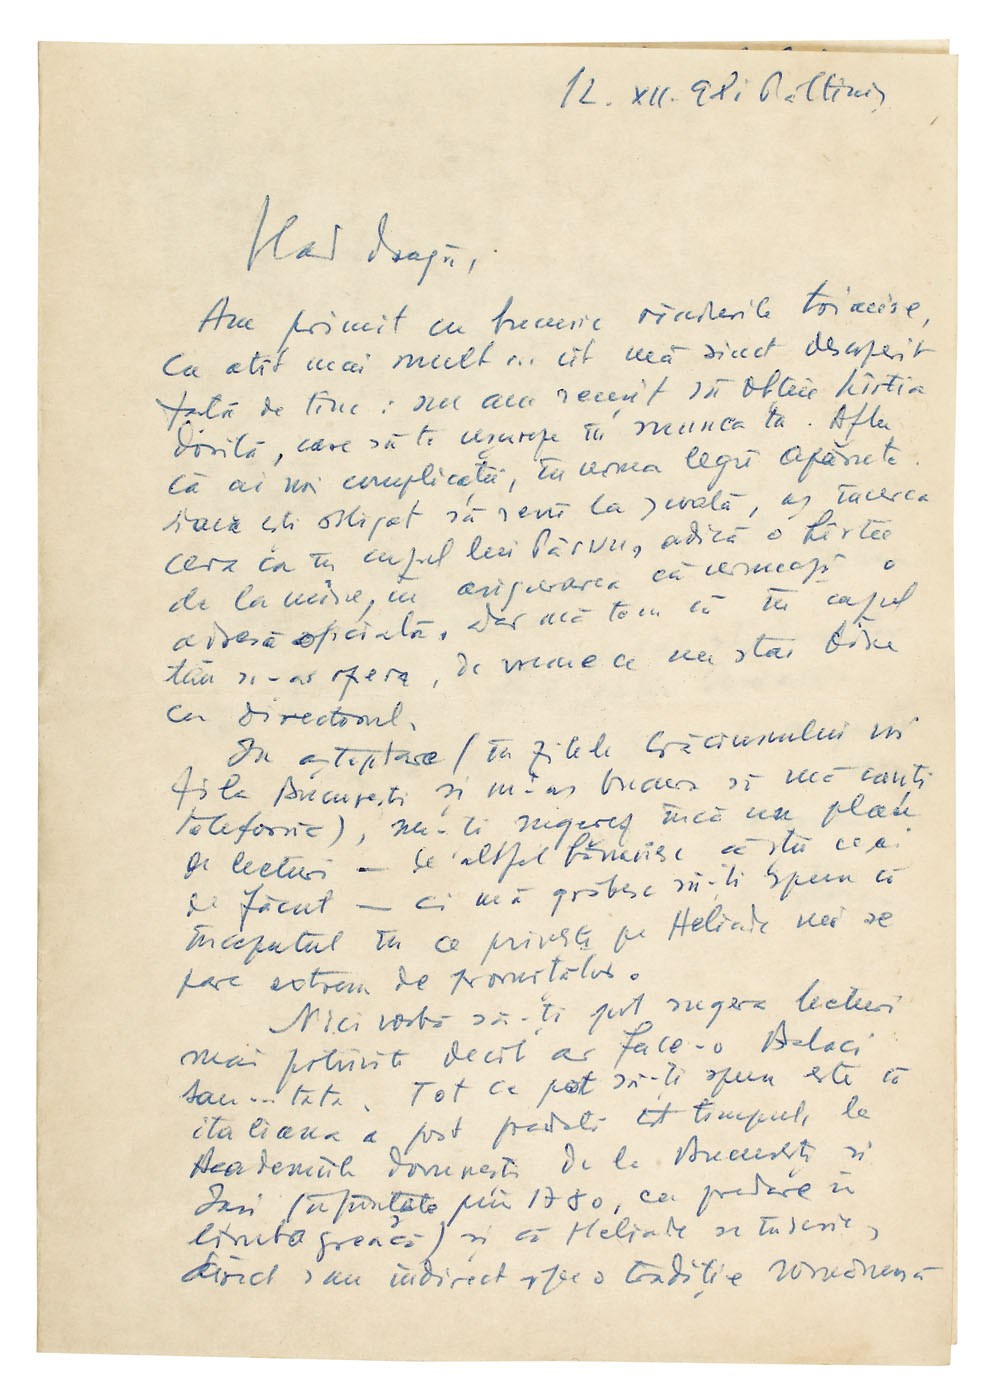 12. XII. 981 Păltiniș
Vlad dragă,
Am primit cu bucurie rîndurile trimise,
cu atît mai mult cu cît mă simt descoperit
față de tine: nu am reușit să obțin hîrtia
dorită, care să te ușureze în munca ta. Aflu
că ai noi complicații, în urma legii apărute.
Dacă ești obligat să revii la școală, aș încerca
ceva ca în cazul lui Pârvu, adică o hîrtie
de la mine, cu asigurarea că urmează o
adresă oficială. Dar mă tem că în cazul
tău n-aș spera, de vreme ce nu stai bine
cu directorul.
In așteptare (în zilele Crăciunului voi
fi la București și m-aș bucura să mă cauți
telefonic), nu-ți sugerez încă un plan
de lecturi — de altfel bănuiesc că știi ce ai
de făcut — ci mă grăbesc să-ți spun că
începutul în ce privește pe Heliade mi se
pare extrem de promițător.
Nici vorbă să-ți pot sugera lecturi
mai potrivite decît ar face-o Balaci
sau tata. Tot ce pot să-ți spun este că
italiana a fost predată tot timpul, la
Academiile domnești de la București și
Iași (înființate prin 1780, cu predare în
limba greacă) și că Heliade se înscrie,
direct sau indirect, pe o tradiție românească